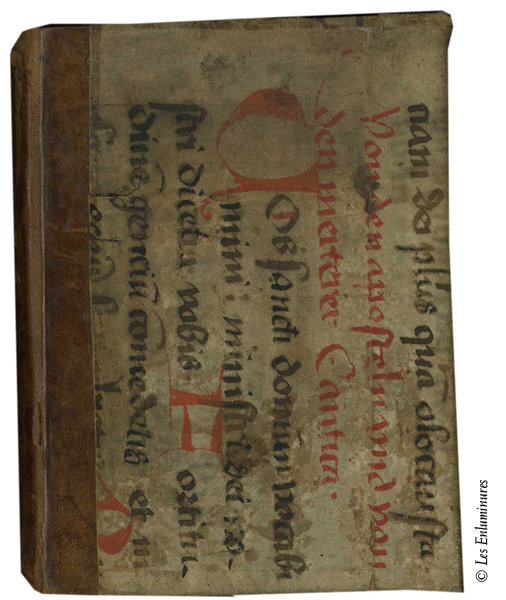 nam dei plus quā olocausta
Von den aposteln und von
den marterer Cantica.
VOs sancti domini vocabi
mini: ministri dei no
stri dicetur vobis Fortitu
dinē gentiū comedetis et in
© Les Enluminures